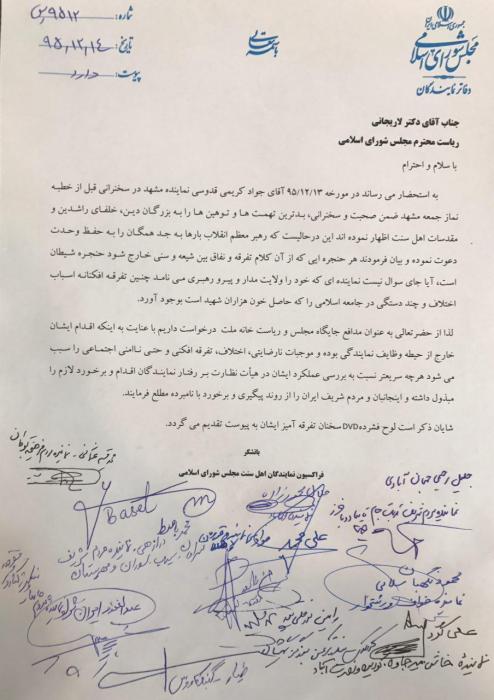 جمهوری اسلامی ایران
مجلس شورای اسلامی
دفاتر نمایندگان
باسمه تعالی
شماره: ۹۵۱۲
تاریخ: ۹۵،۱۲،۱۴
پیوست: دارد
جناب آقای دکتر لاریجانی
ریاست محترم مجلس شورای اسلامی
با سلام و احترام
به استحضار می رساند در مورخه ۹۵/۱۲/۱۳ آقای جواد کریمی قدوسی نماینده مشهد در سخنرانی قبل از خطبه
نماز جمعه مشهد ضمن صحبت و سخنرانی، بدترین تهمت ها و توهین ها را به بزرگان دین، خلفای راشدین و
مقدسات اهل سنت اظهار نموده اند این درحالیست که رهبر معظم انقلاب بارها به جد همگان را به حفظ وحدت
دعوت نموده و بیان فرمودند هر حنجره ایی که از آن کلام تفرقه و نفاق بین شیعه و سنی خارج شود حنجره شیطان
است، آیا جای سوال نیست نماینده ای که خود را ولایت مدار و پیرو رهبری می نامد چنین تفرقه افکنانه اسباب
اختلاف و چند دستگی در جامعه اسلامی را که حاصل خون هزاران شهید است بوجود آورد.
لذا از حضرتعالی به عنوان مدافع جایگاه مجلس و ریاست خانه ملت درخواست داریم با عنایت به اینکه اقدام ایشان
خارج از حیطه وظایف نمایندگی بوده و موجبات نارضایتی، اختلاف، تفرقه افکنی و حتی ناامنی اجتماعی را سبب
می شود هرچه سریعتر نسبت به بررسی عملکرد ایشان در هیأت نظارت بر رفتار نمایندگان اقدام و برخورد لازم را
مبذول داشته و اینجانبان و مردم شریف ایران را از روند پیگیری و برخورد با نامبرده مطلع فرمایند.
شایان ذکر است لوح فشرده DVD سخنان تفرقه آمیز ایشان به پیوست تقدیم می گردد.
باتشکر
فراکسیون نمایندگان اهل سنت مجلس شورای اسلامی
جلیل رحیمی جهان آبادی
نماینده مردم شریف تربت جام تایباد باخرز
Baset
علی محمد
محمود نگهبان سلامی
نماینده خواف و رشتخوار
علی کرد
نماینده خاش میرجاوه نصرت آباد